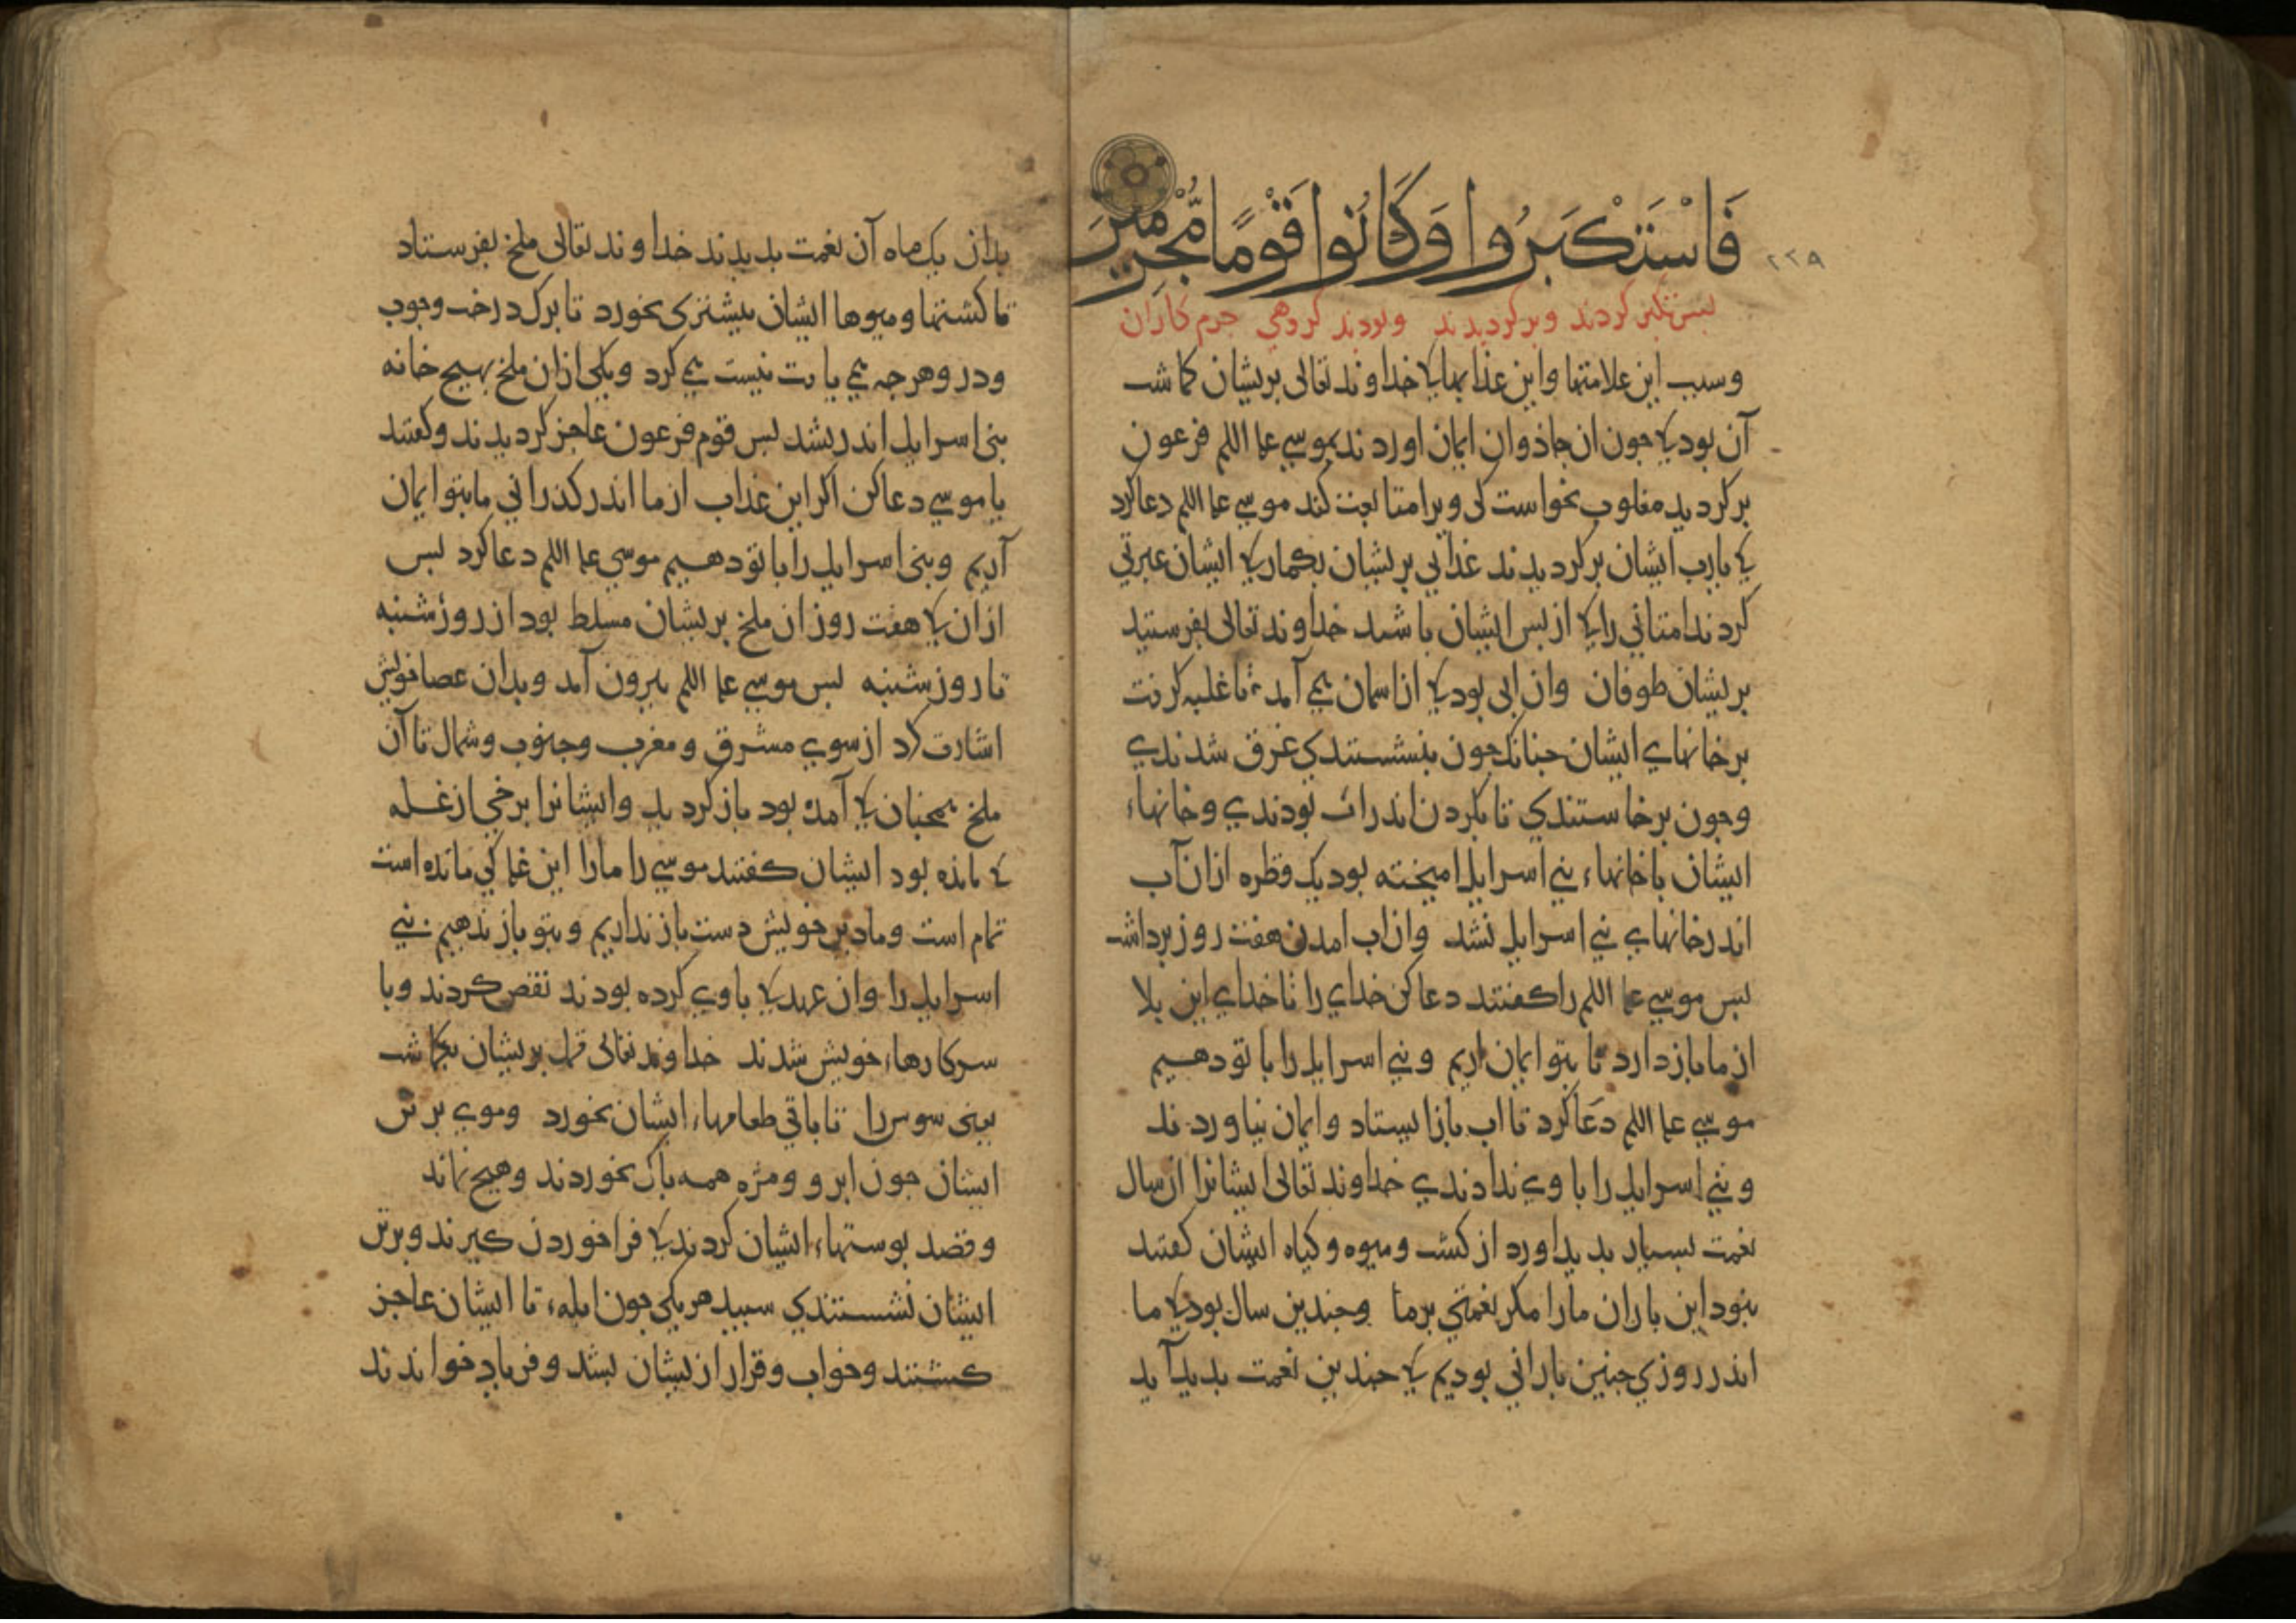 فَاسْتَكْبَرُوا وَكَانُوا قَوْمًا مُّجْرِمِينَ
٢٢٩
بس تکبر کردند وبرکردیدند وبودند کروهی جرم کاران
وسبب این علامتها واین عذابها کی خداوند تعالی بریشان کماشت
آن بود کی جون ان جاذوان ایمان اوردند بموسی علم اللم فرعون
برکردید مغلوب نخواست کی ویرا متابعت کند موسی علم اللم دعا کرد
کی یارب ایشان برکردیدند عذابی بریشان بکمار کی ایشان عبرتی
کردند امتانی را کی از بس ایشان باشند خداوند تعالی بفرستید
بریشان طوفان وان ابی بود کی از اسمان همی آمد تا غلبه کرفت
بر خانهای ایشان جنانک جون بنشستندی غرق شدندی
وجون برخاستندی تا بکردن اندر اب بودندی وخانهاء
ایشان با خانهاء بنی اسرایل امیخته بود یک قطره ازان آب
اندر خانهای بنی اسرایل نشد وان اب امدن هفت روز برداشت
بس موسی علم اللم را کفتند دعا کن خدای را تا خدای این بلا
از ما باز دارد تا بتو ایمان اریم وبنی اسرایل را با تو دهیم
موسی علم اللم دعا کرد تا اب باز ایستاد وایمان نیاوردند
وبنی اسرایل را با وی ندادندی خداوند تعالی ایشانرا ان سال
نعمت بسیار بدید اورد از کشت ومیوه وکیاه ایشان کفتند
نبود این باران مارا مکر نعمتی بر ما وجندین سال بود کی ما
اندر روزی جنین بارانی بودیم کی جندین نعمت بدید آید
بدان یک ماه آن نعمت بدیدند خداوند تعالی ملخ بفرستاد
تا کشتها ومیوها ایشان بیشتری بخورد تا برک درخت وجوب
ودر وهرجه همی یافت نیست همی کرد ویکی ازان ملخ بهیج خانه
بنی اسرایل اندر نشد بس قوم فرعون عاجز کردیدند وکفتند
یا موسی دعا کن اکر این عذاب از ما اندر کذرانی ما بتو ایمان
آریم وبنی اسرایل را با تو دهیم موسی علم اللم دعا کرد بس
ازان کی هفت روز ان ملخ بریشان مسلط بود از روز شنبه
تا روز شنبه بس موسی علم اللم بیرون آمد وبدان عصا خویش
اشارت کرد از سوی مشرق ومغرب وجنوب وشمال تا آن
ملخ همجنان کی آمده بود باز کردید وایشانرا برخی از غله
کی مانده بود ایشان کفتند موسی را مارا این غله کی مانده است
تمام است وما دین خویش دست باز نداریم وبتو باز ندهیم بنی
اسرایل را وان عهد کی با وی کرده بودند نقض کردند وبا
سر کارهاء خویش شدند خداوند تعالی قمل بریشان بکماشت
یعنی سوس را تا باقی طعامهاء ایشان بخورد وموی بر تن
ایشان جون ابرو ومژه همه باک بخوردند وهیج نماند
وقصد بوستهاء ایشان کردند کی فرا خوردن کیرند وبر تن
ایشان نشستندی سبید هر یکی جون ابله تا ایشان عاجز
کشتند وخواب وقرار ازیشان بشد وفریاد خواندند